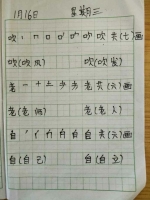 1月16日 星期三
吹 丨 口 口 叶 吹 吹 吹 共(七)画
吹(吹风) 吹(吹雪)
老 一 十 土 耂 老 老 共(六)画
老(老师) 老(老人)
自 丿 亻 冂 自 自 自 共(六)画
自(自己) 自(自立)